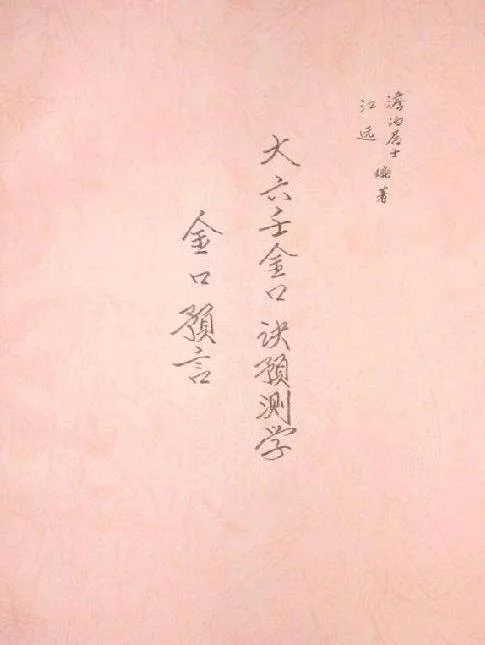 澹泊居士
江远
编著
大六壬金口诀预测学
金口预言